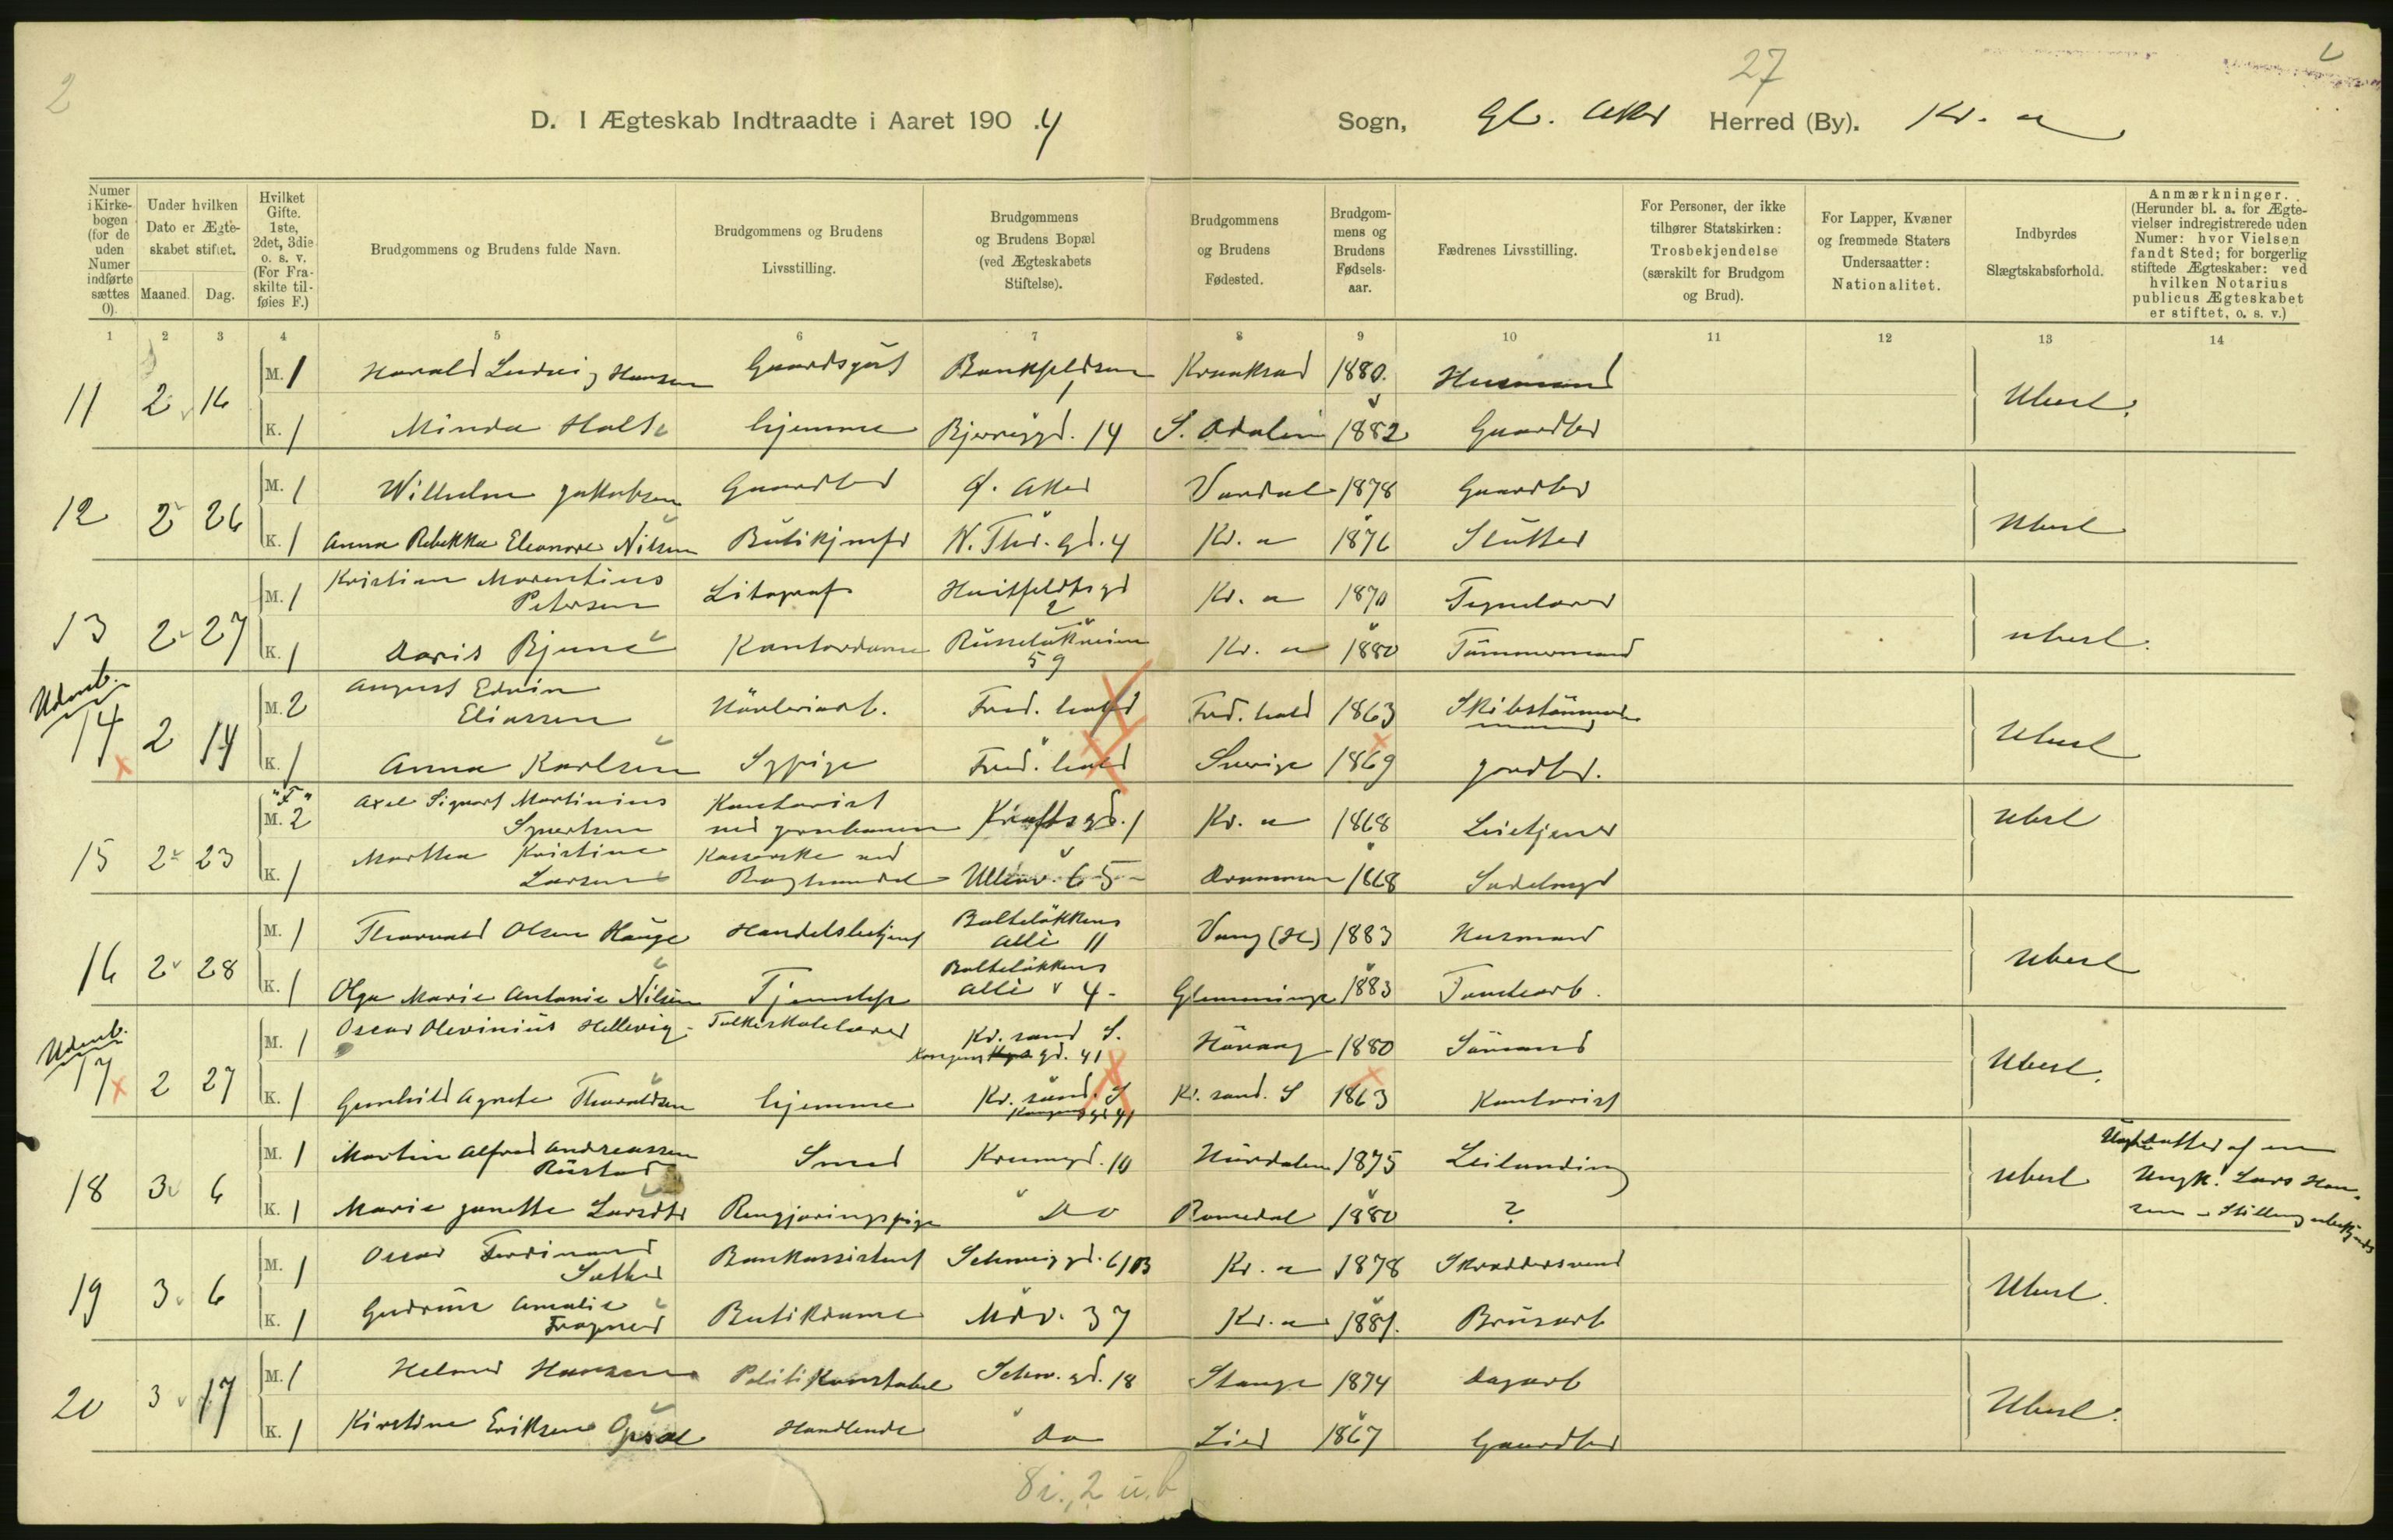 2
27
D. I Ægteskab Indtraadte i Aaret 190.4 Sogn, Gl. Aker Herred (By). Kr. a
Numer i Kirkebogen (for de uden Numer indførte sættes 0).
Under hvilken Dato er Ægteskabet stiftet.
Maaned. Dag.
Hvilket Gifte. 1ste, 2det, 3die o. s. v. (For Fraskilte tilføies F.)
Brudgommens og Brudens fulde Navn.
Brudgommens og Brudens Livsstilling.
Brudgommens og Brudens Bopæl (ved Ægteskabets Stiftelse).
Brudgommens og Brudens Fødested.
Brudgommens og Brudens Fødselsaar.
Fædrenes Livsstilling.
For Personer, der ikke tilhører Statskirken: Trosbekjendelse (særskilt for Brudgom og Brud).
For Lapper, Kvæner og fremmede Staters Undersaatter: Nationalitet.
Indbyrdes Slægtskabsforhold.
Anmærkninger. (Herunder bl. a. for Ægtevielser indregistrerede uden Numer: hvor Vielsen fandt Sted; for borgerlig stiftede Ægteskaber: ved hvilken Notarius publicus Ægteskabet er stiftet, o. s. v.)
1 2 3 4 5 6 7 8 9 10 11 12 13 14
11 2 16 M. 1 Harald Ludvig Hansen Gaardsgut 1 Kraakstad 1880. Husmand Ubesl.
K. 1 Minda Holte hjemme Bjerregd. 14 S. Odalen 1882 Gaardbr
12 2 26 M. 1 Wilhelm Jakobsen Gaardbr Ø. Aker Vardal 1878 Gaardbr Ubesl
K. 1 Anna Rebekka Eleonore Nilsen Butikjmfr W. Thr. gd. 4 Kr. a 1876 Slutter
13 2 27 M. 1 Kristian Marentius Petersen Litograf Huitfeldtsgd 2 Kr. a 1870 Ubesl.
K. 1 Doris Bjune Kontordame Russeløkveien 59 Kr. a 1880 Tømmermand
Udenb.
14 2 14 M. 2 August Edvin Eliassen Høvleriarb. Fred. hald Fred. hald 1863 Skibstømmermand Ubesl
K. 1 Anna Karlsen Sypige Fred. hald Sverige 1869 Jordbr.
"F"
15 2 23 M. 2 Axel Sigvart Martinius Syvertsen Kontorist ved jernbanen Kraftsgd. 1 Kr. a 1868 Leietjener Ubesl
K. 1 Martha Kristine Larsen Kasserske ved Boghandel Ullev. v. 65 Drammen 1868 Sadelmgr
16 2 28 M. 1 Thorvald Olsen Hauge Handelsbetjent Bolteløkkens alle 11 Vang (H) 1883 Husmand Ubesl
K. 1 Olga Marie Antonie Nilsen Tjenestepi Bolteløkkens alle 4. Glemminge 1883 Tomtearb.
Udenb.
17 2 27 M. 1 Oscar Olevinius Hellevig Folkeskolelærer Kr. sand S. Kongens gd. 41 Høvaag 1880 Sømand Ubesl.
K. 1 Gunhild Agnete Thoraldsen hjemme Kr. sand. S Kongens gd 41 Kr. sand. S 1863 Kontorist
18 3 6 M. 1 Martin Alfred Andreassen Rustad Smed Krumgd. 10 Hurdalen 1875 Leilænding Ubesl datter af en Ungk. Lars Hansen - Stilling ubekjendt
K. 1 Marie Janette Larsdtr Rengjøringspige Do Romedal 1880 ?
19 3 6 M. 1 Oscar Ferdinand Sæther Bankassistent Schweiggd. 6/B Kr. a 1878 Skræddersvend Ubesl.
K. 1 Gudrun Amalie Fragnerd Butikdame Mdv. 37 Kr. a 1881. Brusarb
20 3 17 M. 1 Helmer Hansen Politikonstabel Schw. gd. 18 Stange 1874 Dagarb Ubesl.
K. 1 Kirstine Eriksen Opsal Handlende Do Lier 1867 Gaardbr
8 i., 2 u. b